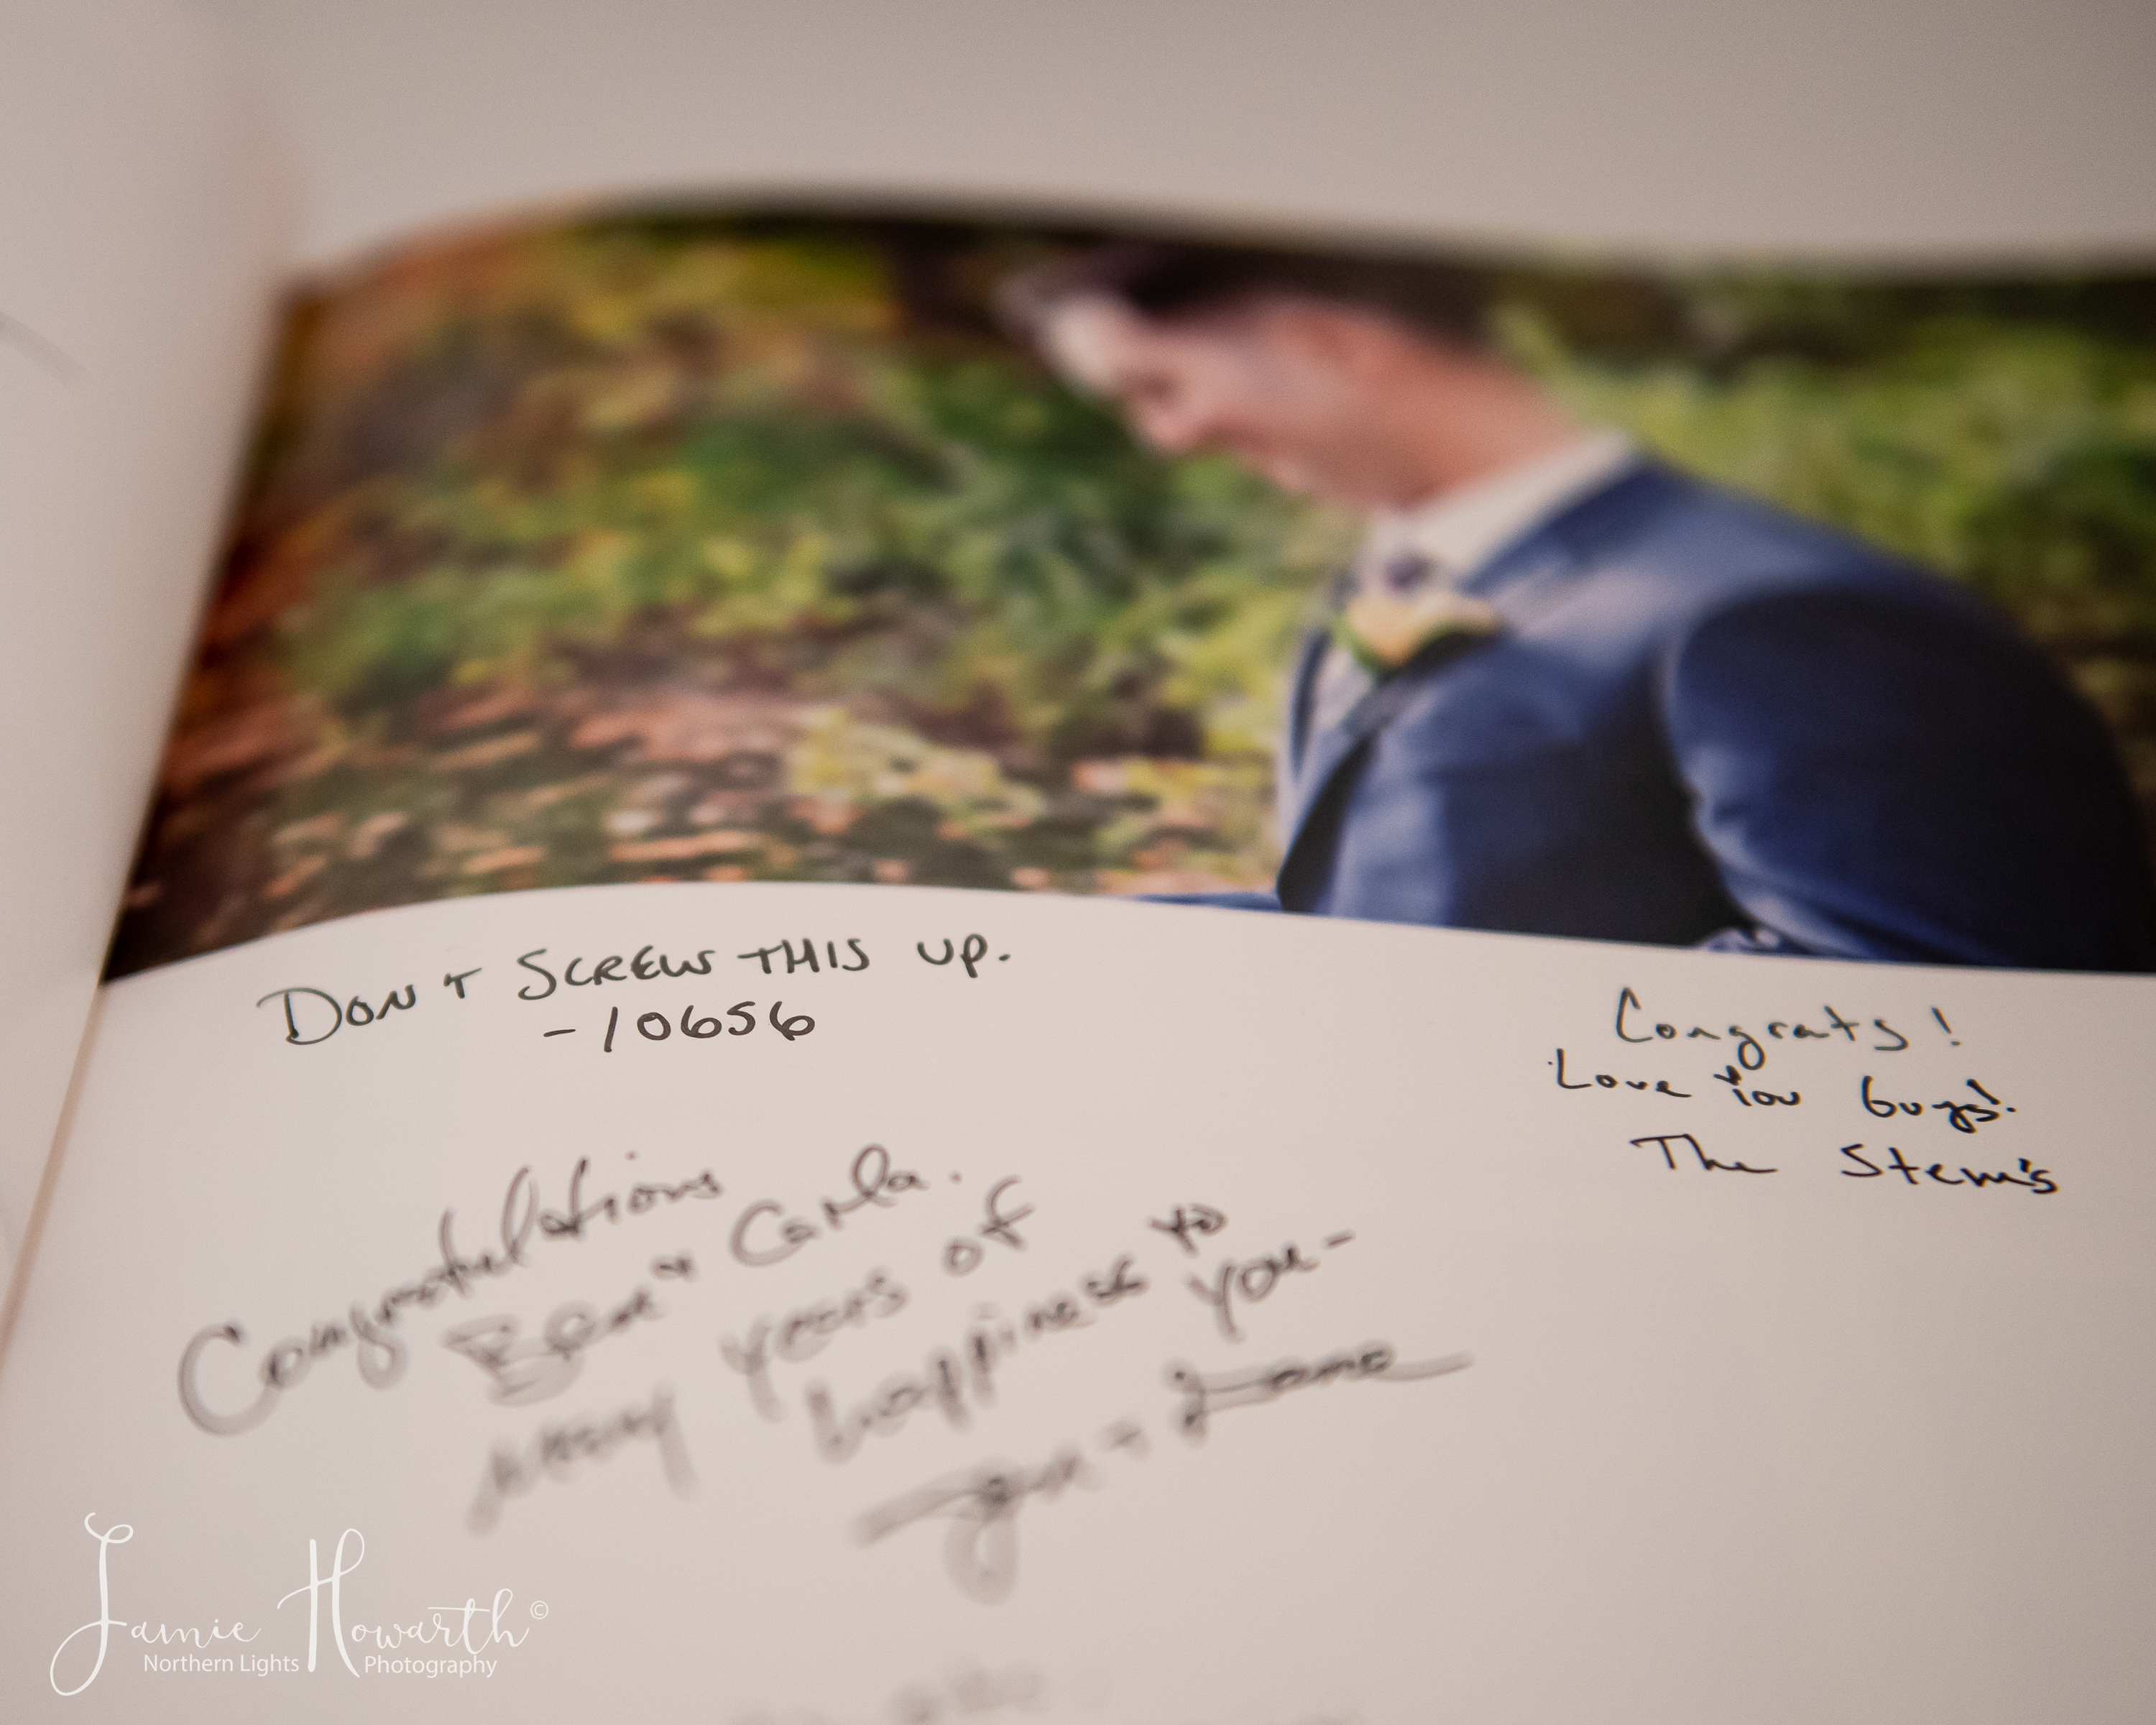 DON T SCREW THIS UP.
-10656
Congrats!
Love You Guys!
The Stem's
Congratultions
Ben & Carla.
Many years of
happiness to
you-
Jamie Howarth©
Northern Lights Photography